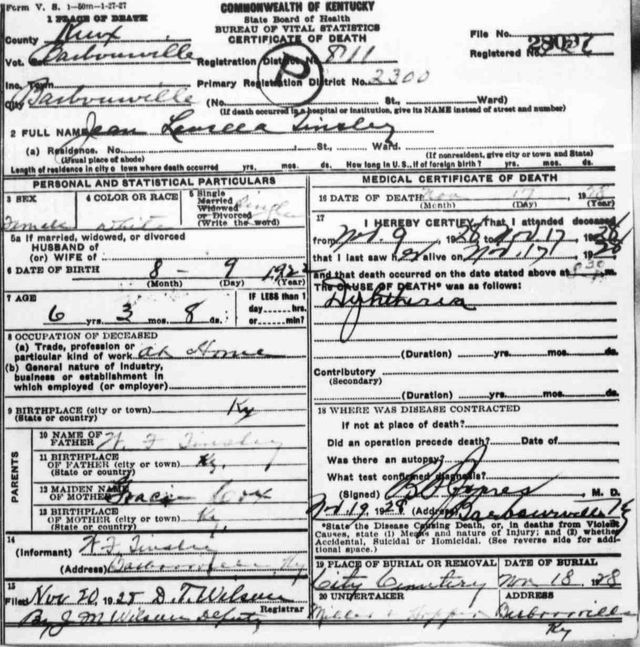 Form V. S. 1-50m-1-27-27
COMMONWEALTH OF KENTUCKY
State Board of Health
BUREAU OF VITAL STATISTICS
CERTIFICATE OF DEATH
1 PLACE OF DEATH
County Knox
File No.
Vot. Barbourville
Registration District No. 811
Registered No.
Inc. Town
Primary Registration District No. 2300
City Barbourville (No. St., Ward)
(If death occurred in a hospital or institution, give its NAME instead of street and number)
2 FULL NAME Jean Tinsley
(a) Residence. No. , St., Ward.
(Usual place of abode) (If nonresident, give city or town and State)
Length of residence in city o town where death occurred yrs. mos. ds. How long in U. S., if of foreign birth? yrs. mos. ds.
PERSONAL AND STATISTICAL PARTICULARS
3 SEX Female
4 COLOR OR RACE White
5 Single Married Widowed or Divorced (Write the word) Single
5a If married, widowed, or divorced
HUSBAND of
(or) WIFE of
6 DATE OF BIRTH 8 - 9 1922
(Month) (Day) (Year)
7 AGE 6 yrs. 3 mos. 8 ds.
IF LESS than 1 day hrs. or min?
8 OCCUPATION OF DECEASED
(a) Trade, profession or particular kind of work At Home
(b) General nature of industry, business or establishment in which employed (or employer)
9 BIRTHPLACE (city or town) Ky
(State or country)
PARENTS
10 NAME OF FATHER W. F. Tinsley
11 BIRTHPLACE OF FATHER (city or town) Ky.
(State or country)
12 MAIDEN NAME OF MOTHER Cox
13 BIRTHPLACE OF MOTHER (city or town) Ky.
(State or country)
14 (Informant) W. F. Tinsley
(Address) Barbourville Ky
15 Filed Nov 20, 1928 D. T. Wilson
Registrar
By J M Wilson Deputy
MEDICAL CERTIFICATE OF DEATH
16 DATE OF DEATH Nov 17 1928
(Month) (Day) (Year)
17 I HEREBY CERTIFY, That I attended deceased
from Nov. 9, 1928 to Nov 17, 1928
that I last saw her alive on Nov. 17, 1928
and that death occurred on the date stated above at
The CAUSE OF DEATH* was as follows:
Diphtheria
(Duration) yrs. mos. ds.
Contributory
(Secondary)
(Duration) yrs. mos. ds.
18 WHERE WAS DISEASE CONTRACTED
if not at place of death?
Did an operation precede death? Date of
Was there an autopsy?
What test confirmed diagnosis?
(Signed) M. D.
19, 1928 (Address) Barbourville Ky
*State the Disease Causing Death, or, in deaths from Violent
Causes, state (1) Means and nature of Injury; and (2) whether
Accidental, Suicidal or Homicidal. (See reverse side for addi-
tional space.)
19 PLACE OF BURIAL OR REMOVAL
City Cemetery
DATE OF BURIAL
Nov 18 28
20 UNDERTAKER
Barbourville
Ky